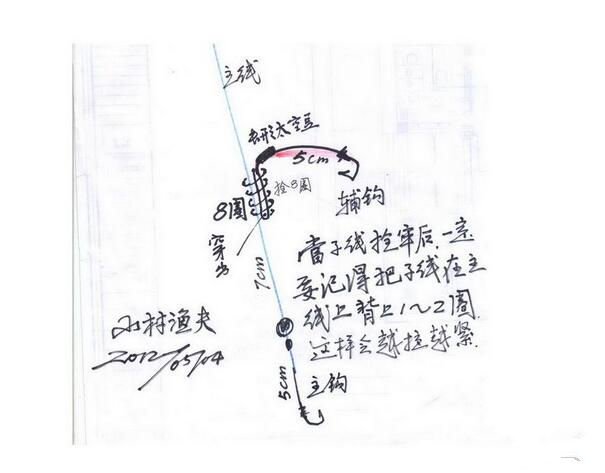 主线
太空豆
5cm
拴8圈
8圈
辅钩
穿出
7cm
当子线拴牢后.一定
要记得把子线在主
线上背上1~2圈.
这样会越拉越紧.
小村渔夫
2012/05/04
5cm
主钩